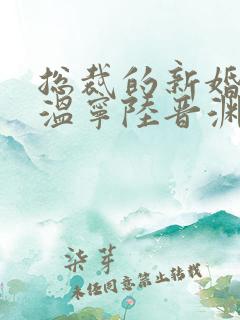 总裁的新婚
温宁陆晋渊
柒芽
未经同意禁止转载